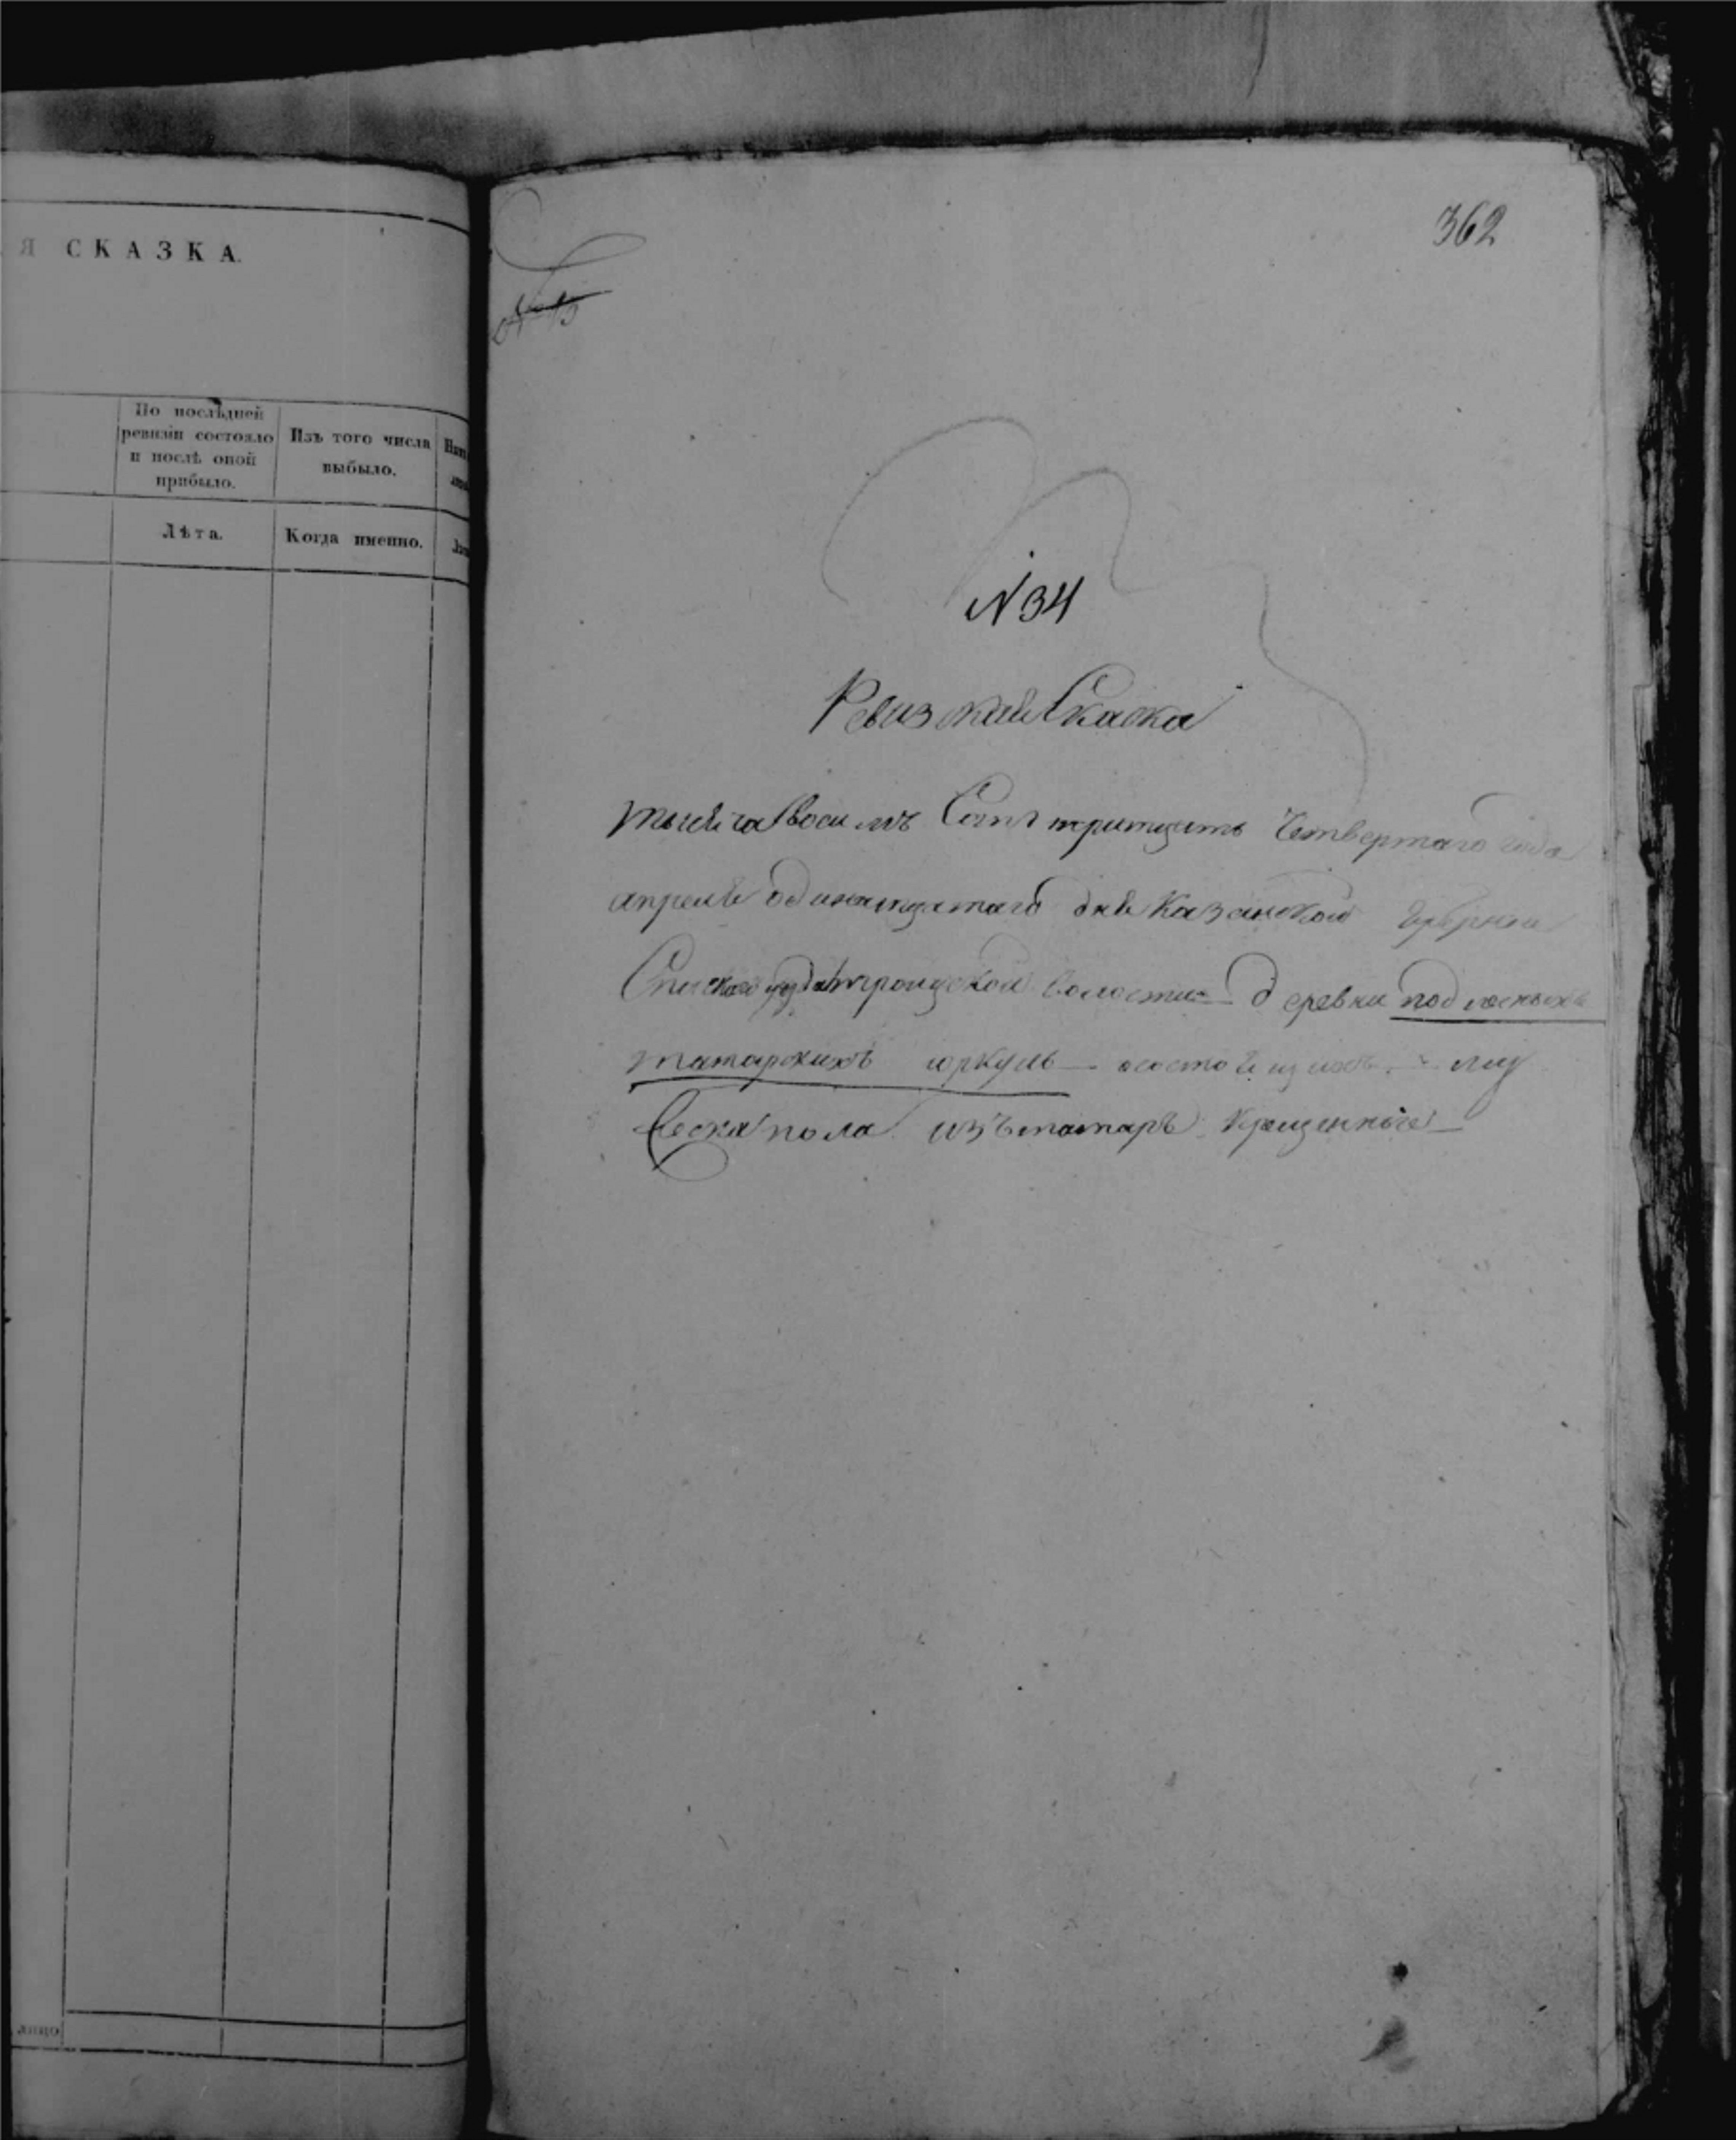 Я СКАЗКА.
По послѣдней
ревизіи состояло
и послѣ оной
прибыло.
Изъ того числа
выбыло.
Лѣта.
Когда именно.
лицо
362
№ 34
Ревизкая Скаска
тысяча восемъ Сотъ тритцать Четвертаго года
апреля одинатцатаго дня Казанской Губернии
Спаскаго уезда троицкой волости деревни подлесныхъ
татаркихъ юркуль о состоящихъ му
ческа пола изъ татаръ крещенные